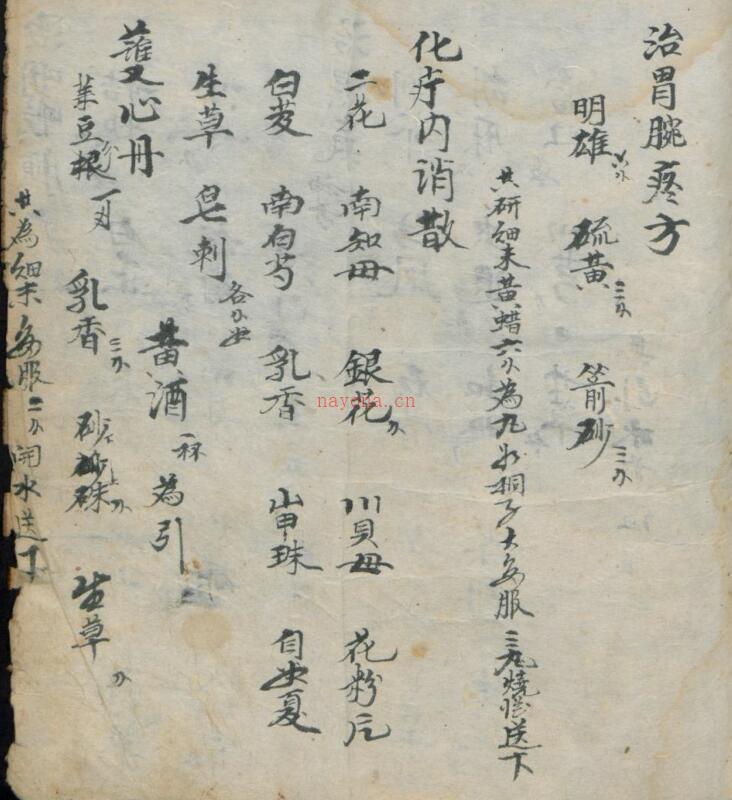 治胃腕疼方
明雄 硫黄三分 箭砂三分
共研細末黄蜡六分為丸如桐子大每服三九燒酒送下
化疔内消散
二花 南知母 銀花 川貝母 花粉
白芨 南白芍 乳香 山甲珠 夏
生草 皂刺 各分
黄酒一杯為引
護心丹
菉豆粉一刄 乳香三分 砂 生草
共為細末每服二分開水送下
nayona.cn